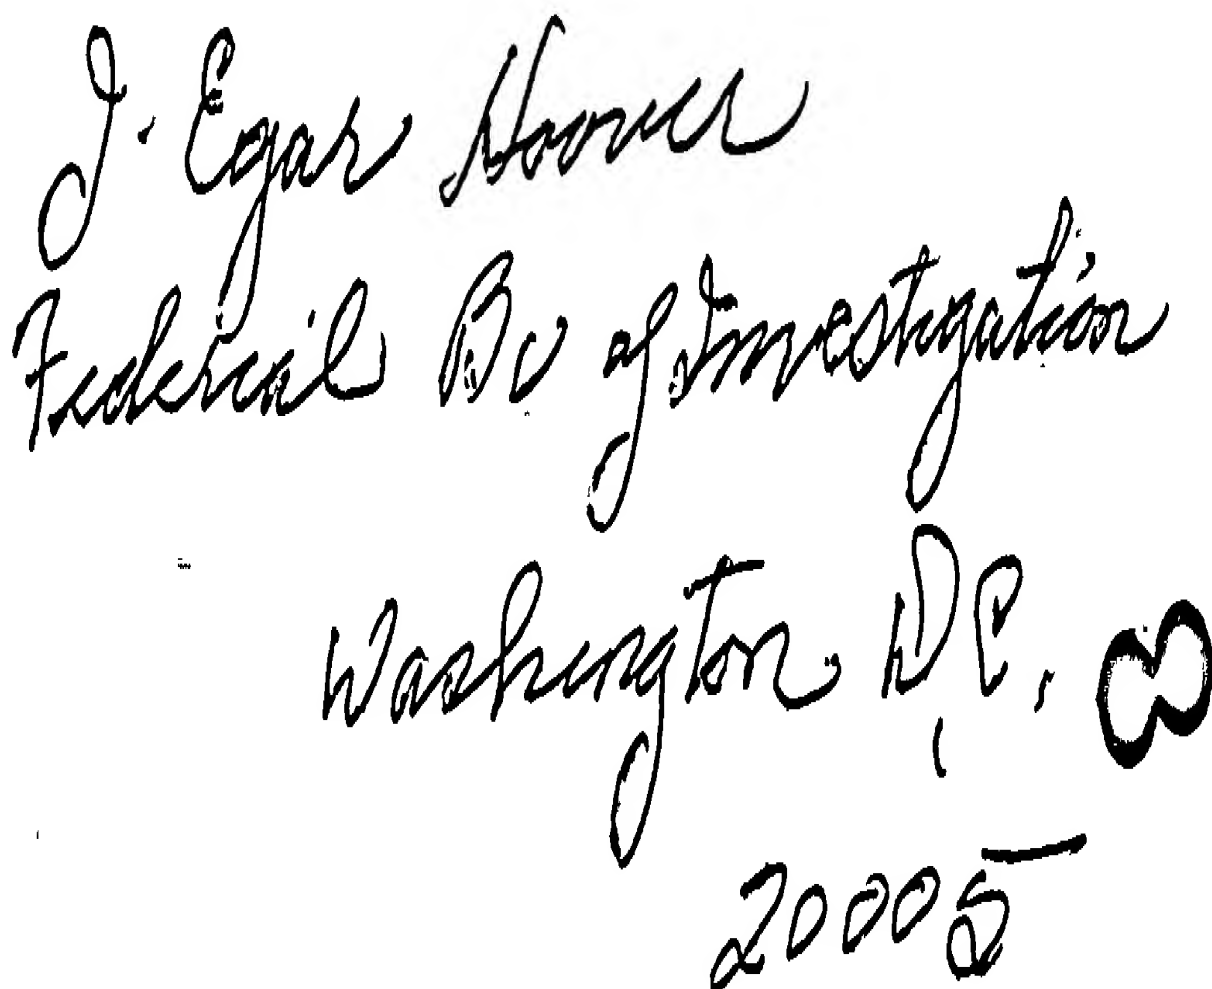 J. Egar Hoover
Federal Bu of Investigation
Washington, D.C. 8
20005